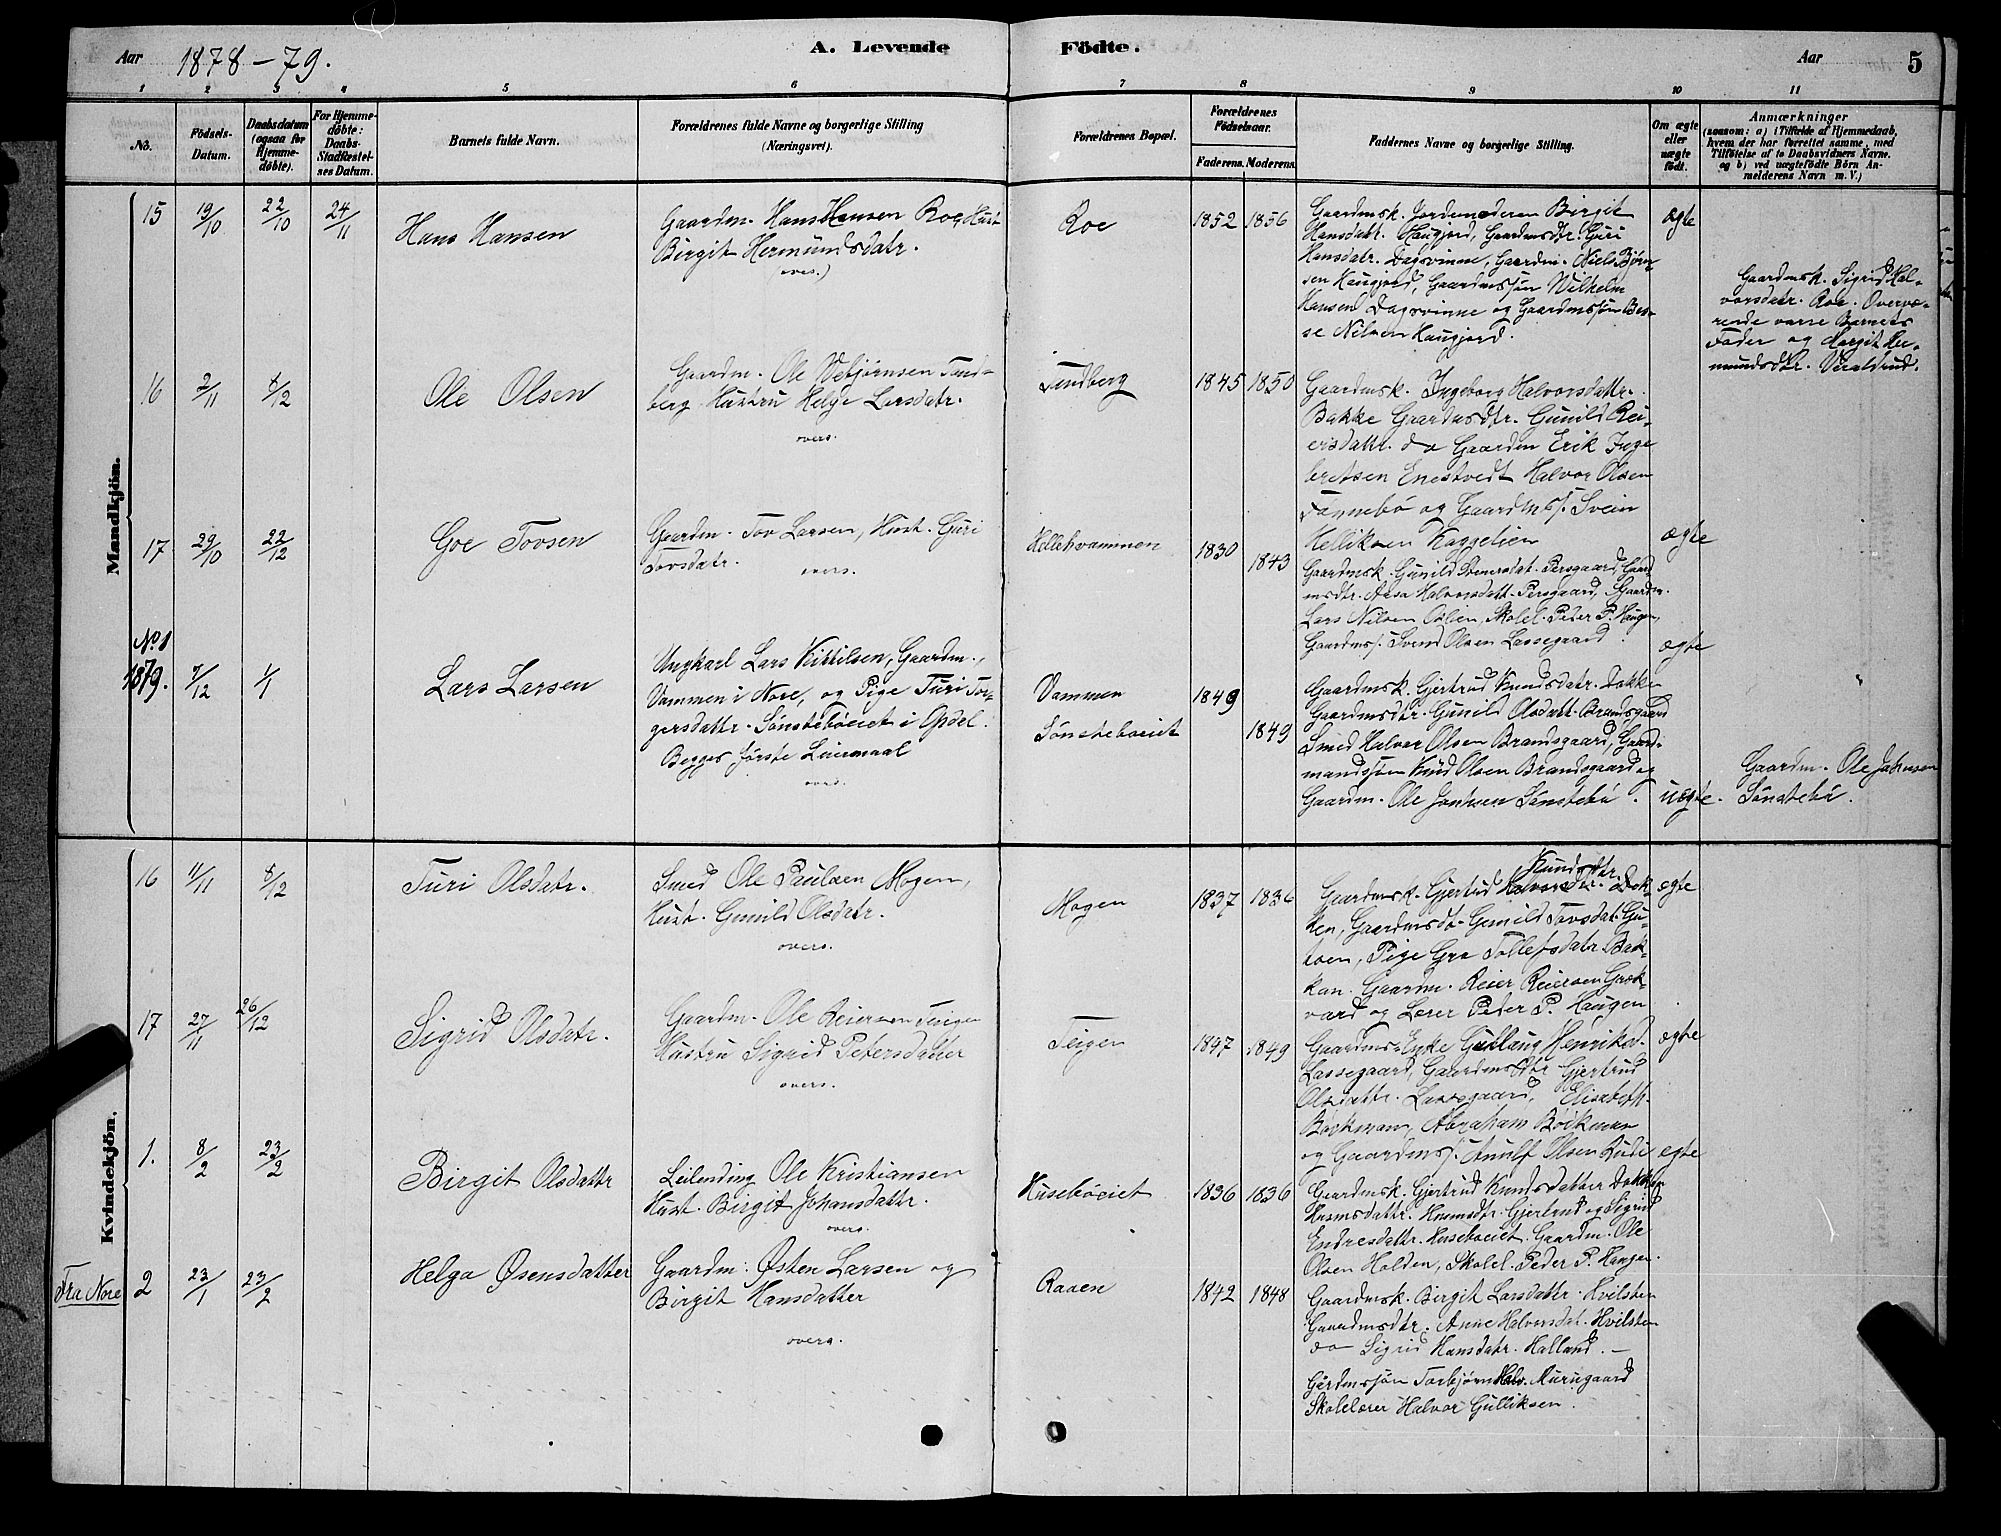 Aar 1878-79.
A. Levende Födte.
Aar 5
1 2 3 4 5 6 7 8 9 10 11
No.
Födsels-Datum.
Daabsdatum (ogsaa for Hjemme-döbte).
For Hjemme-döbte: Daabs-Stadfæstel-ses Datum.
Barnets fulde Navn.
Forældrenes fulde Navne og borgerlige Stilling
(Næringsvei).
Forældrenes Bopæl.
Forældrenes Födselsaar.
Faderens. Moderens.
Faddernes Navne og borgerlige Stilling.
Om ægte eller uægte födt.
Anmærkninger
(saasom: a) i Tilfælde af Hjemmedaab,
hvem der har forrettet samme, med
Tilföielse af to Daabsvidners Navne.
og b) ved uægtefödte Börn An-
melderens Navn m. V.)
Mandkjön.
15 19/10 22/10 24/11
Hans Hansen
Gaardm. Hans Hansen Roe, Hust
Birgit Hermundsdatr.
overs.)
Roe
1852 1856
Gaardmsk. Jordemoderen Birgit
Hansdatr. Haugjord, Gaardmsdtr. Guri
Hansdatr. Dagsvinne, Gaardm. Niels Bjørn
sen Haugjord, Gaardmssøn Wilhelm
Hansen Dagsvinne og Gaardmssøn Bes-
se Nilsen Haugjord.
ægte
Gaardmsk. Sigrid Hal-
vorsdatr. Roe. Overvæ-
rende varre Barnets
Fader og Margit Her-
mundsdtr. Viraldrud.
16 2/11 8/12
Ole Olsen
Gaardm. Ole Vetjørnsen Tind-
berg Hustru Helge Larsdatr.
overs.
Tindberg
1845 1850
Gaardmsk. Ingeborg Halvorsdattr.
Bakke Gaardmsdtr. Gunild Rei-
ersdattr. do Gaardm Erik Inge
bretsen Enestvedt Halvor Olsen
Tønnebø og Gaardms/. Svein
Helliksen Kaggelien
ægte
17 29/10 22/12
Goe Tovsen
Gaardm. Tov Larsen, Hust. Guri
Tovsdatr.
overs.
1830 1843
Gaardmsk. Gunild Stenersdat. Persgaard, Gaard-
msdtr. Aasa Halvorsdatt. Persgaard, Gaardm.
Lars Nilsen Oslien, Skolel. Peder P. Haugen,
Gaardms/. Svend Olsen Lassegaard.
ægte
No. 1
1879. 7/12 1/1
Lars Larsen
Ungkarl Lars Kittilsen, Gaardm.,
Vammen i Nore, og Pige Turi Tor-
gersdattr. Sønstebøeiet i Opdal.
Begges første Leiermaal
overs.
Vammen
Sønstebøeiet
1849
1849
Gaardmsk. Gjertrud Knudsdatr. Dokken
Gaardmsdtr. Gunild Olsdatt. Brandsgaard
Smed Halvor Olsen Brandsgaard, Gaard-
mandssøn Knud Olsen Brandsgaard og
Gaardm. Ole Jonhsen Sønstebø.
uægte.
Gaardm. Ole Johnsen
Sønstebø.
Kvindekjön.
16 11/11 8/12
Turi Olsdatr.
Smed Ole Paulsen Mogen,
Hust. Gunild Olsdatr.
overs.
Mogen
1837 1836
Knudsdtr.
Gaardmsk. Gjertrud Halvorsdtr. Dok
ken, Gaardmsdt. Gunild Tovsdat. Gu-
toen, Pige Gro Tollefsdatr Bak-
kan. Gaardm. Reier Reiersen Grøk-
vard og Lærer Peder P. Haugen
ægte
17 27/11 26/12
Sigrid Olsdatr.
Gaardm. Ole Reiersen Teigen
Hustru Sigrid Petersdatter
overs.
Teigen
1847 1849
Gaardms. Enke Gullaug Henriksd.
Lassegaard, Gaardmsdtr Gjertrud
Olsdattr. Lassegaard, Elisabeth
Bøckman, Abraham Bøckman
og Gaardms/. Anulf Olsen Rudi
ægte
1. 8/2 23/2
Birgit Olsdattr
Leilending Ole Kristiansen
Hust. Birgit Johansdattr.
overs.
Husebøeiet
1836 1836
Gaardmsk. Gjertrud Knudsdatter Dokken
Husmsdattr. Husmsdtr. Gjertrud og Sigrid
Endresdattr. Husebøeiet. Gaardm. Ole
Olsen Holden, Skolel. Peder P. Haugen.
ægte
Fra Nore 2 23/1 23/2
Helga Øsensdatter
Gaardm. Østen Larsen og
Birgit Hansdatter
overs.
Raaen
1842 1848
Gaardmsk. Birgit Larsdatter Hvilsten
Gaardmsdtr. Anne Halvorsdat. Hvilsten
do Sigrid Hansdatr. Halland. -
Gårdmssøn Torbjørn Halv. Murugaard
Skolelærer Halvor Gulliksen.